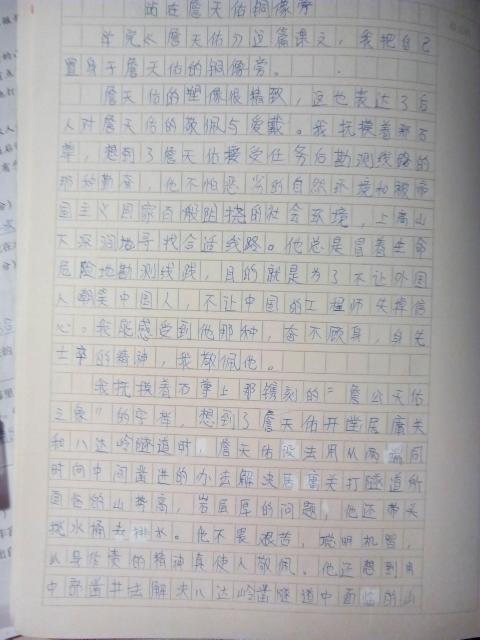 站在詹天佑铜像旁
学完《詹天佑》这篇课文,我把自己
置身于詹天佑的铜像旁。
詹天佑的塑像很精致,这也表达了后
人对詹天佑的敬佩与爱戴。我抚摸着那石
尊,想到了詹天佑接受任务后勘测线路的
那种勤奋,他不怕恶劣的自然环境和被帝
国主义国家百般阻挠的社会环境,上高山
下深涧地寻找合适线路。他总是冒着生命
危险地勘测线路,目的就是为了不让外国
人嘲笑中国人,不让中国的工程师失掉信
心。我能感受到他那种,奋不顾身,身先
士卒的精神,我敬佩他。
我抚摸着石尊上那镌刻的“詹公天佑
之象”的字样,想到了詹天佑开凿居庸关
和八达岭隧道时,詹天佑设法用从两端同
时向中间凿进的办法解决居庸关打隧道所
面临的山势高,岩层厚的问题,他还带头
挑水桶去排水。他不畏艰苦,聪明机智,
以身作责的精神真使人敬佩。他还想到用
中部凿井法解决八达岭凿隧道中面临的山